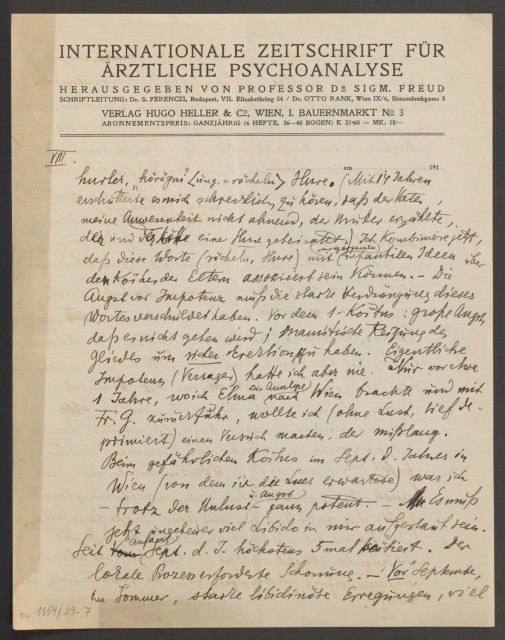 INTERNATIONALE ZEITSCHRIFT FÜR
ÄRZTLICHE PSYCHOANALYSE
HERAUSGEGEBEN VON PROFESSOR DR SIGM. FREUD
SCHRIFTLEITUNG: Dr. S. FERENCZI, Budapest, VII. Elisabethring 54 / Dr. OTTO RANK, Wien IX/4, Simondenkgasse 8
VERLAG HUGO HELLER & Co, WIEN, I. BAUERNMARKT No 3
ABONNEMENTSPREIS: GANZJÄHRIG (6 HEFTE, 36—40 BOGEN) K 21·60 — MK. 18·—
am 191
VIII
"hörögni" (ung. = röcheln) Hure. (Mit 14 Jahren
erschütterte es mich schrecklich, zu hören, daß der Vater,
meine Anwesenheit nicht ahnend, der Mutter erzählte,
der und der hätte eine Hure geheiratet.) Ich kombiniere jetzt,
daß diese Worte (röcheln, Hure) mit vergessenen infantilen Ideen über
den Koitus der Eltern assoziiert sein können. — Die
Angst vor Impotenz muß die starke Verdrängung dieses
Wortes verschuldet haben. Vor dem 1. Koitus: große Angst,
daß es nicht gehen wird; Neigung des
Gliedes um sicher Erektion zu haben. Eigentliche
Impotenz (Versagen) hatte ich aber nie. Nur vor etwa
1 Jahre, wo ich Elma zur Analyse nach Wien brachte und mit
Fr. G. zurückfuhr, wollte ich (ohne Lust, tief de-
primiert) einen Versuch machen, der mißlang.
Beim gefährlichen Koitus im Sept. d. Jahres in
Wien (von dem ich die Lues erwartete) war ich
— trotz der Unlust u. Angst — ganz potent. — Es muß
jetzt ungeheuer viel Libido in mir aufgestaut sein.
Seit anfangs Sept. d. J. höchstens 5 mal koitiert. Der
lokale Prozess erforderte Schonung. — Vor September,
im Sommer, starke libidinöse Erregungen, viel
1054/29-7